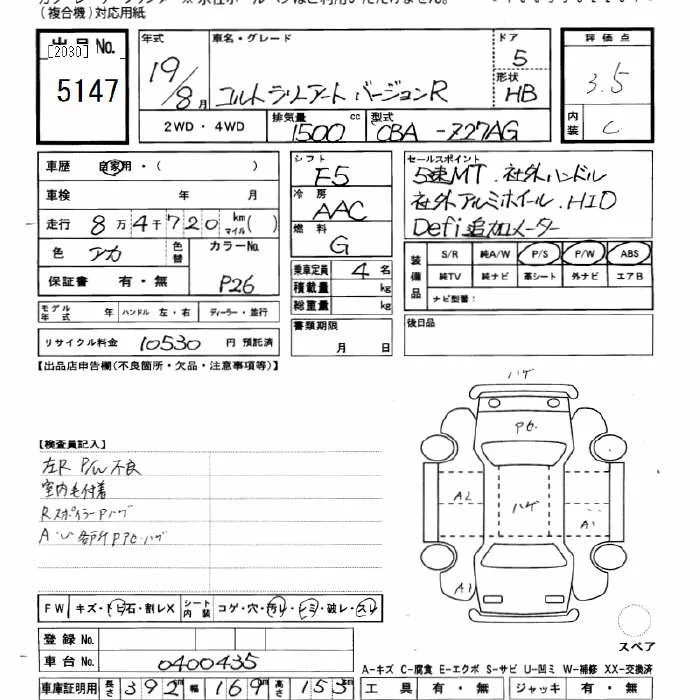 (複合機)対応用紙
出品No.
[2030]
5147
年式 19/8月
車名・グレード コルト ラリーアート バージョンR
ドア 5
形状 HB
2WD・4WD
排気量 1500 cc
型式 CBA-Z27AG
評価点 3.5
内装 C
車歴 自家用・( )
車検 年 月
走行 8万4千720 km マイル( )
色 アカ 色替
カラーNo. P26
保証書 有・無
モデル年式 年 ハンドル 左・右 ディーラー・並行
リサイクル料金 10530 円 預託済
シフト F5
冷房 AAC
燃料 G
乗車定員 4 名
積載量 kg
総重量 kg
書類期限
月 日
セールスポイント
5速MT.社外ハンドル
社外アルミホイール.HID
Defi追加メーター
装備品
S/R 純A/W P/S P/W ABS
純TV 純ナビ 革シート 外ナビ エアB
ナビ型番:
後日品
【出品店申告欄(不良箇所・欠品・注意事項等)】
【検査員記入】
左R P/W不良
室内毛付着
RスポイラーPハゲ
ハゲ
P6.
ハゲ
A2
A1
A1
スペア
FW キズ・トビ石・割レX
シート内装 コゲ・穴・汚レ・シミ・破レ・スレ
登録No.
車台No. 0400435
車庫証明用 長さ 392 cm 幅 169 cm 高さ 153 cm
A-キズ C-腐食 E-エクボ S-サビ U-凹ミ W-補修 XX-交換済
工具 有・無 ジャッキ 有・無